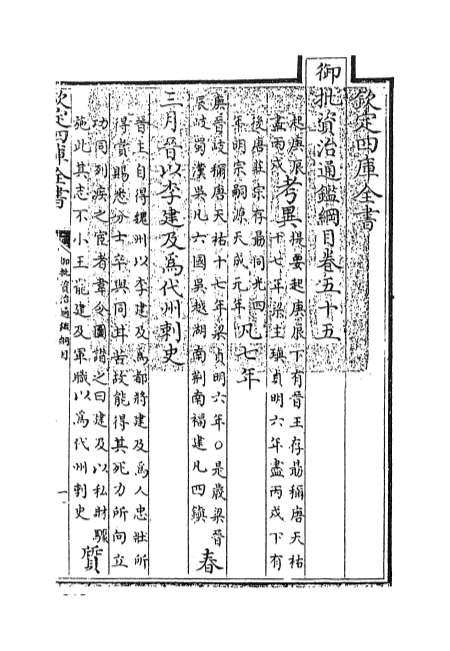 欽定四庫全書
御批資治通鑑綱目卷五十五
起庚辰
盡丙戌
考異
提要起庚辰下有晉王存勗稱唐天祐
十七年梁主瑱貞明六年盡丙戌下有
後唐莊宗存勗同光四
年明宗嗣源天成元年
凡七年
庚辰
晉岐稱唐天祐十七年梁貞明六年○是歲梁晉
岐蜀漢吳凡六國吳越湖南荆南福建凡四鎮
春
三月晉以李建及為代州刺史
晉王自得魏州以李建及為都將建及為人忠壯所
得賞賜悉分士卒與同甘苦故能得其死力所向立
功同列疾之宦者韋令圖譖之曰建及以私財驟
施此其志不小王罷建及軍職以為代州刺史
質
欽定四庫全書
御批資治通鑑綱目
一